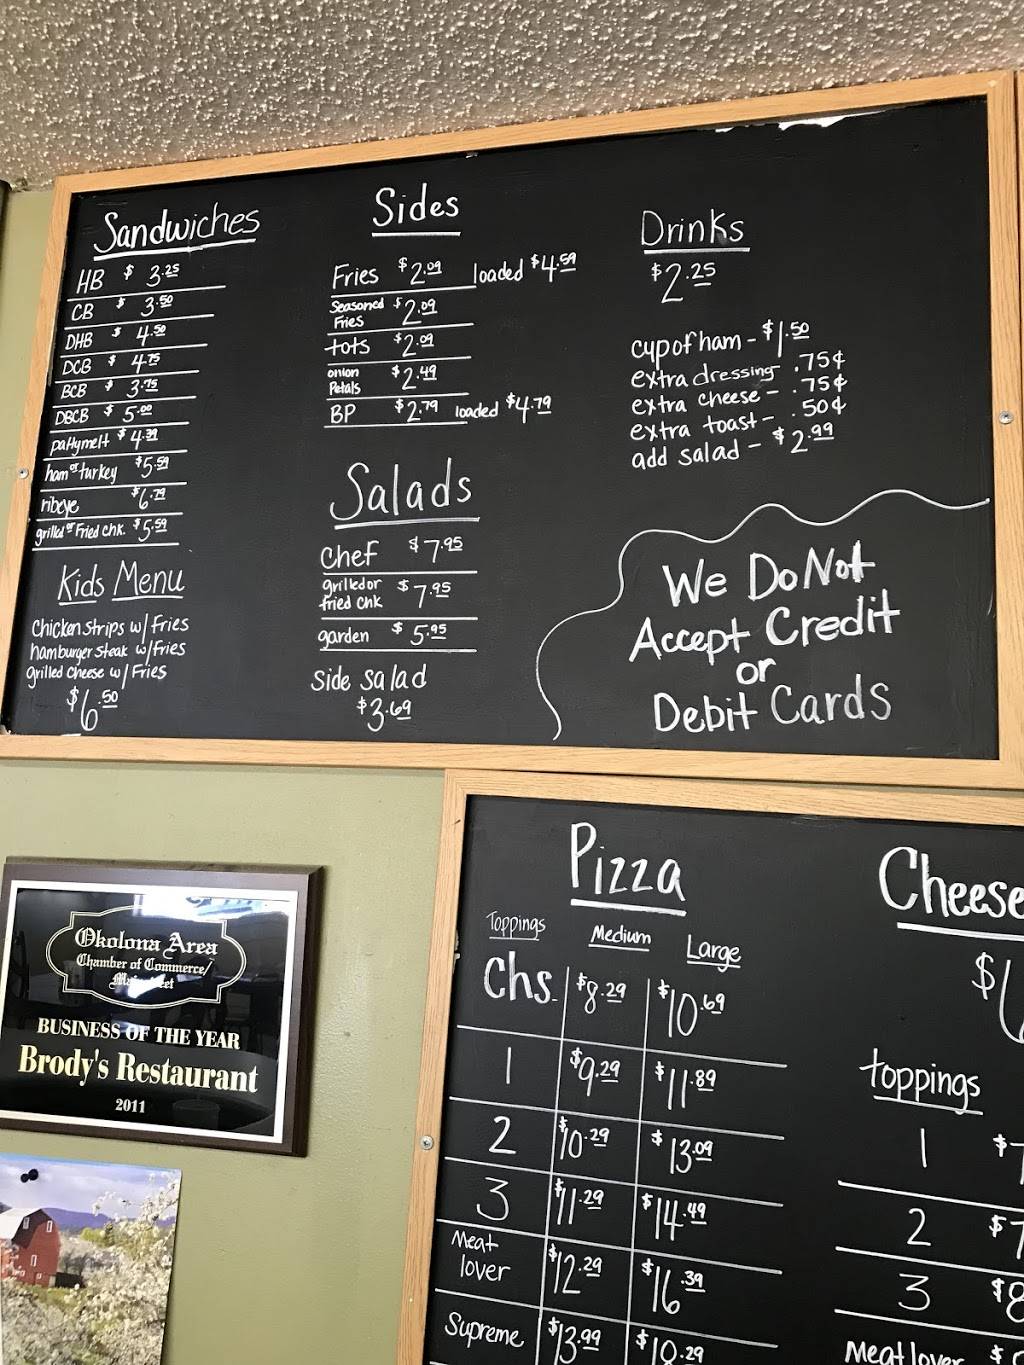 Sandwiches
HB $ 3.25
CB $ 3.50
DHB $ 4.50
DCB $ 4.75
BCB $ 3.75
DBCB $ 5.00
pattymelt $ 4.39
ham or turkey $5.59
ribeye $6.79
grilled or Fried chk. $5.59
Kids Menu
Chicken strips w/ Fries
hamburger steak w/Fries
grilled cheese w/ Fries
$6.50
Sides
Fries $2.09 loaded $4.59
Seasoned Fries $2.09
tots $2.09
onion Petals $2.49
BP $2.79 loaded $4.79
Salads
Chef $7.95
grilled or fried chk $7.95
garden $5.95
side salad
$3.69
Drinks
$2.25
cup of ham - $1.50
extra dressing .75¢
extra cheese - .75¢
extra toast - .50¢
add salad - $2.99
We Do Not
Accept Credit
or
Debit Cards
Okolona Area
Chamber of Commerce/
BUSINESS OF THE YEAR
Brody's Restaurant
2011
Pizza
Toppings Medium Large
Chs. $8.29 $10.69
1 $9.29 $11.89
2 $10.29 $13.09
3 $11.29 $14.49
Meat lover $12.29 $16.39
Supreme $13.99
Cheese
toppings
1
2
3
Meat lover